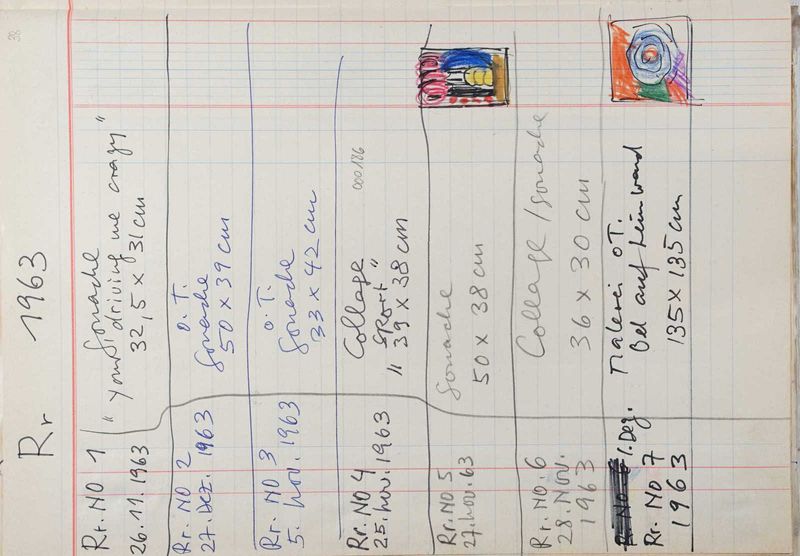 38
Rr 1963
Rr. NO 1
26.11.1963
Gouache
"Your driving me crazy"
32,5 x 31 cm
Rr. NO 2
27. Dez. 1963
O.T.
Gouache
50 x 39 cm
Rr. NO 3
5. Nov. 1963
O.T.
Gouache
33 x 42 cm
Rr. NO 4
25. Nov. 1963
Collage
"Sport"
39 x 38 cm
000186
Rr. NO 5
27. Nov. 63
Gouache
50 x 38 cm
Rr. NO. 6
28. Nov.
1963
Collage / Gouache
36 x 30 cm
1. Dez.
Rr. NO 7
1963
Malerei O.T.
Oel auf Leinwand
135 x 135 cm